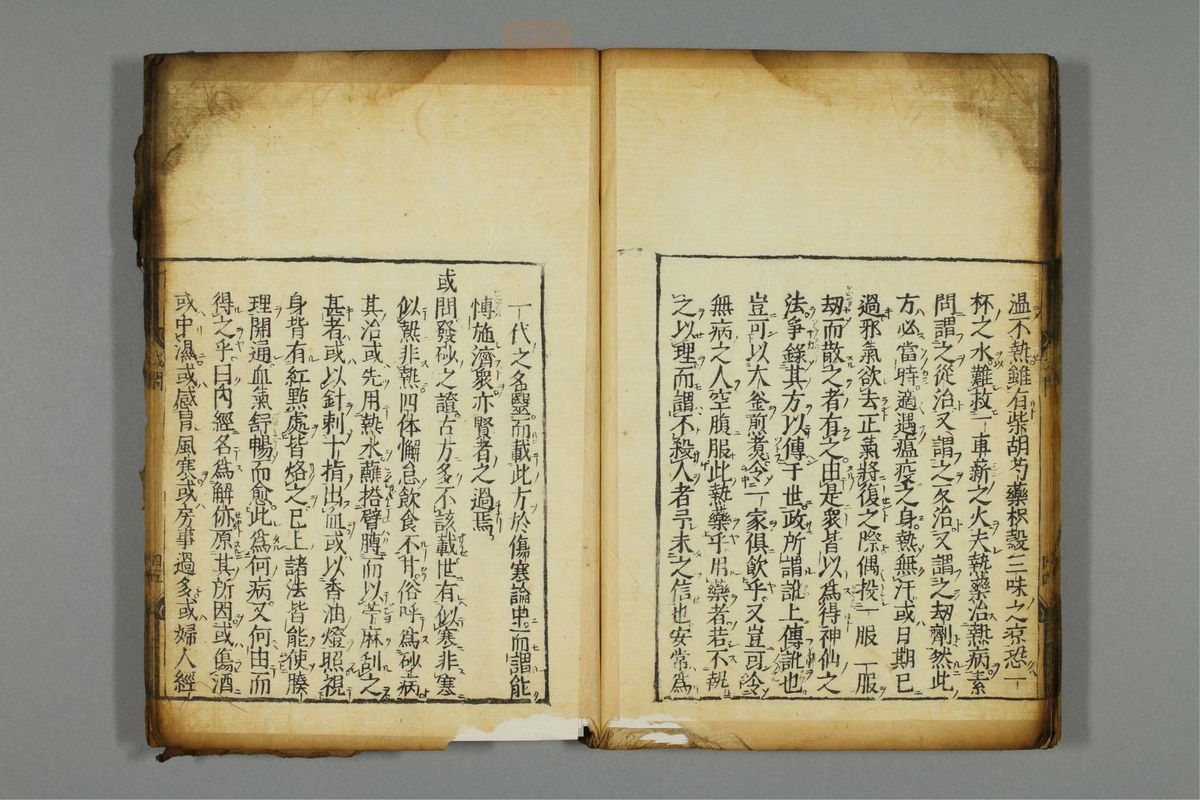 温不熱雖有柴胡芍藥枳殼三味之凉恐一
杯之水難救一車薪之火夫熱藥治熱病素
問謂之從治又謂之反治又謂之劫劑然此
方必當時適遇瘟疫之身熱無汗或日期已
過邪氣欲去正氣將復之際偶投一服一服
劫而散之者有之由是衆皆以為得神仙之
法爭錄其方以傳于世政所謂訛上傳訛也
豈可以大釜煎煑令一家俱飲乎又豈可令
無病之人空腹服此熱藥乎用藥者若不執
之以理而謂不殺人者予未之信也安常為
一代之名醫而載此方於傷寒論中而謂能
博施濟衆亦賢者之過焉
或問發砂之證古方多不該載世有似寒非寒
似熱非熱四体懈怠飲食不甘俗呼為砂病
其治或先用熱水蘸搭臂膊而以苧麻刮之
甚者或以針刺十指出血或以香油燈照視
身背有紅點處皆烙之已上諸法皆能使腠
理開通血氣舒暢而愈此為何病又何由而
得之乎曰内經名為解㑊原其所因或傷酒
或中濕或感冒風寒或房事過多或婦人經